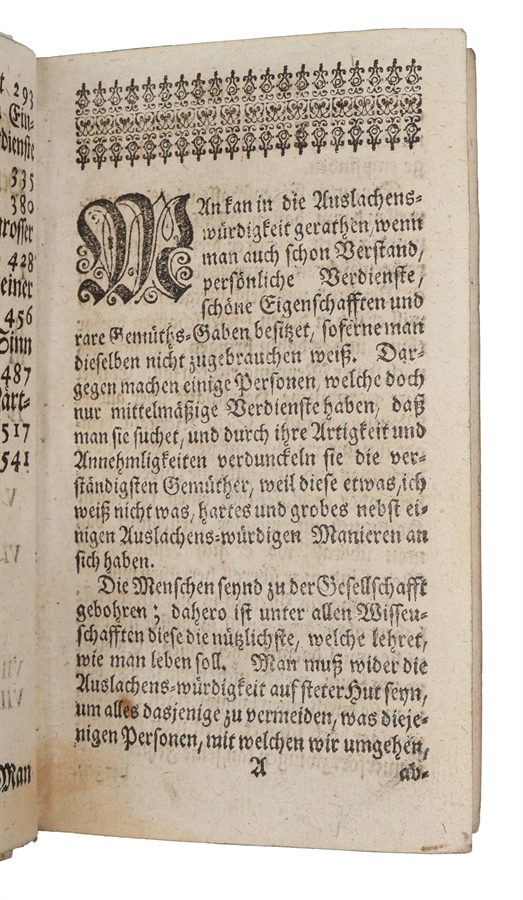 t 293
Ein-
dienste
335
380
grosser
428
einer
456
Sinn
487
Härt-
517
541
Man
MAn kan in die Auslachens-
würdigkeit gerathen, wenn
man auch schon Verstand,
persönliche Verdienste,
schöne Eigenschafften und
rare Gemüths-Gaben besitzet, soferne man
dieselben nicht zugebrauchen weiß. Dar-
gegen machen einige Personen, welche doch
nur mittelmäßige Verdienste haben, daß
man sie suchet, und durch ihre Artigkeit und
Annehmligkeiten verdunckeln sie die ver-
ständigsten Gemüther, weil diese etwas, ich
weiß nicht was, hartes und grobes nebst ei-
nigen Auslachens-würdigen Manieren an
sich haben.
Die Menschen seynd zu der Gesellschafft
gebohren; dahero ist unter allen Wissen-
schafften diese die nützlichste, welche lehret,
wie man leben soll. Man muß wider die
Auslachens-würdigkeit auf steter Hut seyn,
um alles dasjenige zu vermeiden, was dieje-
nigen Personen, mit welchen wir umgehen,
A
ab-